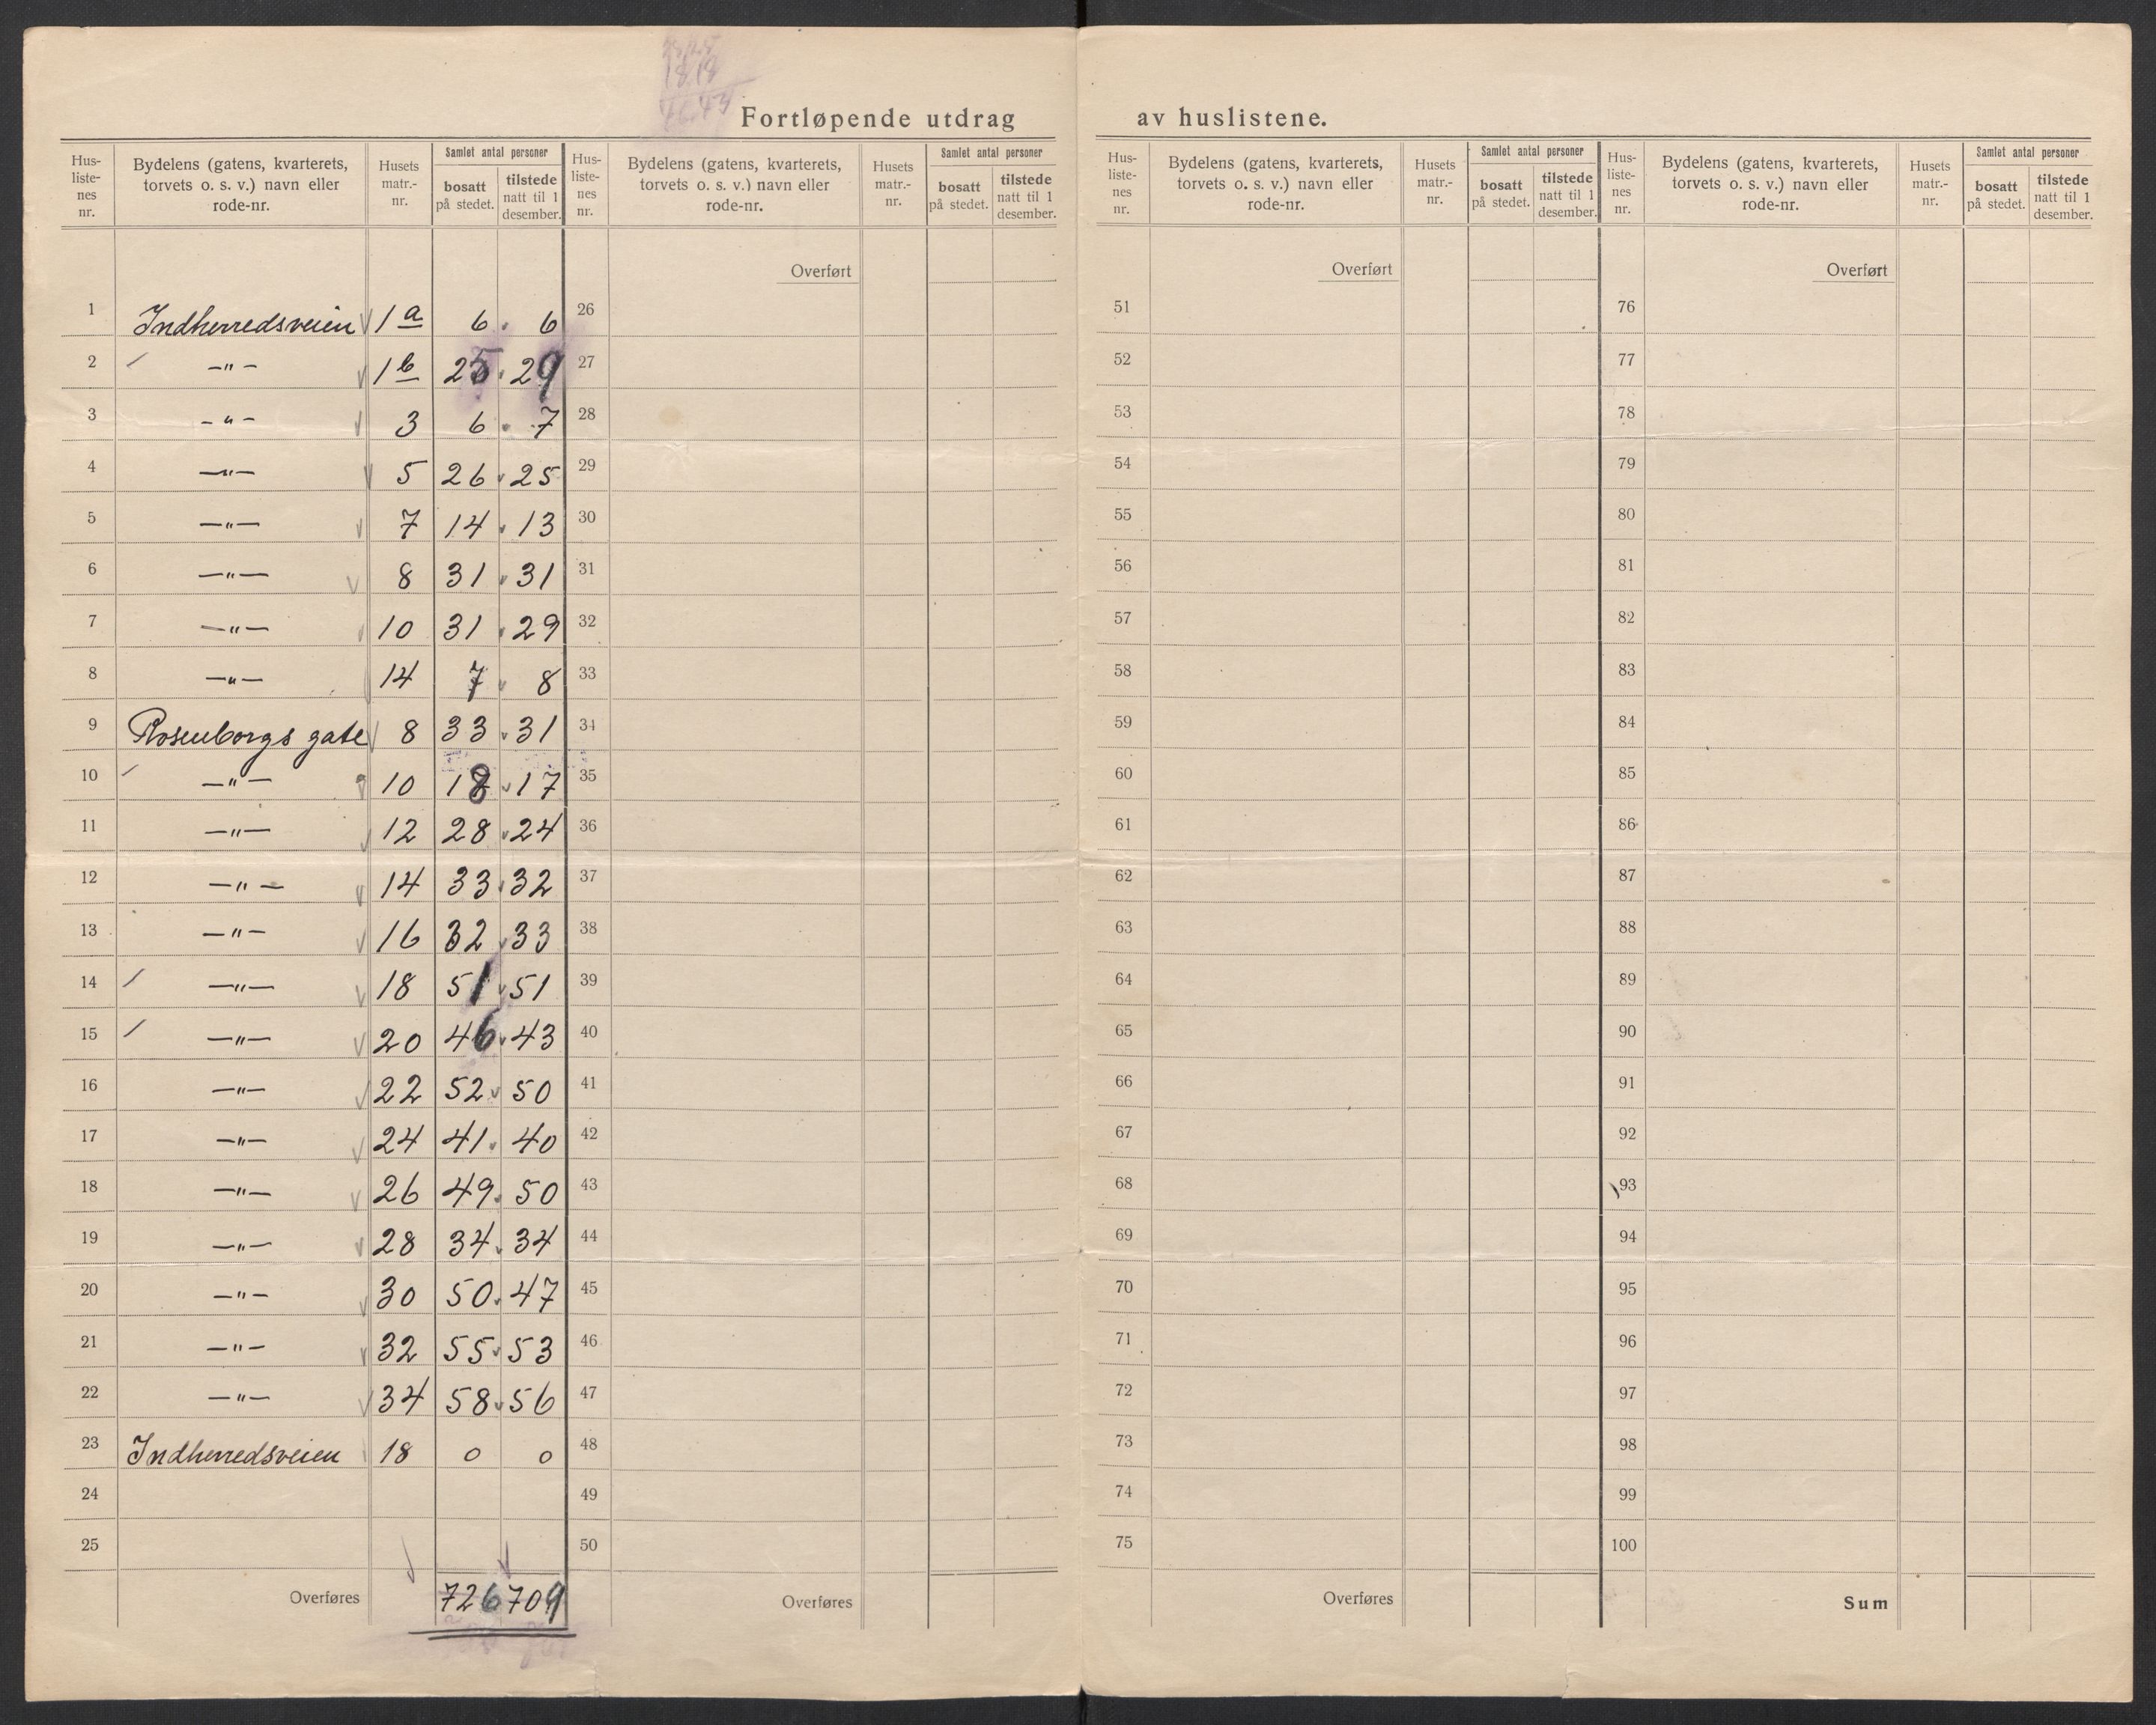 18.18
Fortløpende utdrag av huslistene.
Hus-
liste-
nes
nr.
Bydelens (gatens, kvarterets,
torvets o. s. v.) navn eller
rode-nr.
Husets
matr.-
nr.
Samlet antal personer
bosatt
på stedet.
tilstede
natt til 1
desember.
Hus-
liste-
nes
nr.
Bydelens (gatens, kvarterets,
torvets o. s. v.) navn eller
rode-nr.
Husets
matr.-
nr.
Samlet antal personer
bosatt
på stedet.
tilstede
natt til 1
desember.
Hus-
liste-
nes
nr.
Bydelens (gatens, kvarterets,
torvets o. s. v.) navn eller
rode-nr.
Husets
matr.-
nr.
Samlet antal personer
bosatt
på stedet.
tilstede
natt til 1
desember.
Hus-
liste-
nes
nr.
Bydelens (gatens, kvarterets,
torvets o. s. v.) navn eller
rode-nr.
Husets
matr.-
nr.
Samlet antal personer
bosatt
på stedet.
tilstede
natt til 1
desember.
Overført Overført Overført
1 Indherredsveien 1a 6 6 26 51 76
2 —"— 1b 25 29 27 52 77
3 —"— 3 6 7 28 53 78
4 —"— 5 26 25 29 54 79
5 —"— 7 14 13 30 55 80
6 —"— 8 31 31 31 56 81
7 —"— 10 31 29 32 57 82
8 —"— 14 7 8 33 58 83
9 Rosenborgs gate 8 33 31 34 59 84
10 —"— 10 18 17 35 60 85
11 —"— 12 28 24 36 61 86
12 —"— 14 33 32 37 62 87
13 —"— 16 32 33 38 63 88
14 —"— 18 51 51 39 64 89
15 —"— 20 46 43 40 65 90
16 —"— 22 52 50 41 66 91
17 —"— 24 41 40 42 67 92
18 —"— 26 49 50 43 68 93
19 —"— 28 34 34 44 69 94
20 —"— 30 50 47 45 70 95
21 —"— 32 55 53 46 71 96
22 —"— 34 58 56 47 72 97
23 Indherredsveien 18 0 0 48 73 98
24 49 74 99
25 50 75 100
Overføres 726 709 Overføres Overføres Sum